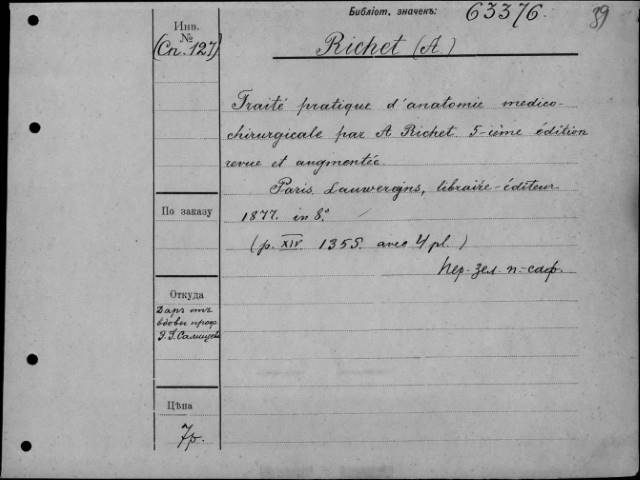 Библіот. значекъ: 63376. 89
Инв. №
(Сп. 127)
Richet (A.)
Traité pratique d'anatomie medico-
chirurgicale par A Richet. 5-ième édition
revue et augmentée.
Paris. Lauwereyns, libraire-éditeur
1877. in 8.°
(p. XIV. 1355. avec 4 pl.)
Пер. зел. п.-саф.
По заказу
Откуда
Даръ отъ
вдовы проф.
Э. Г. Салищева
Цѣна
7р.